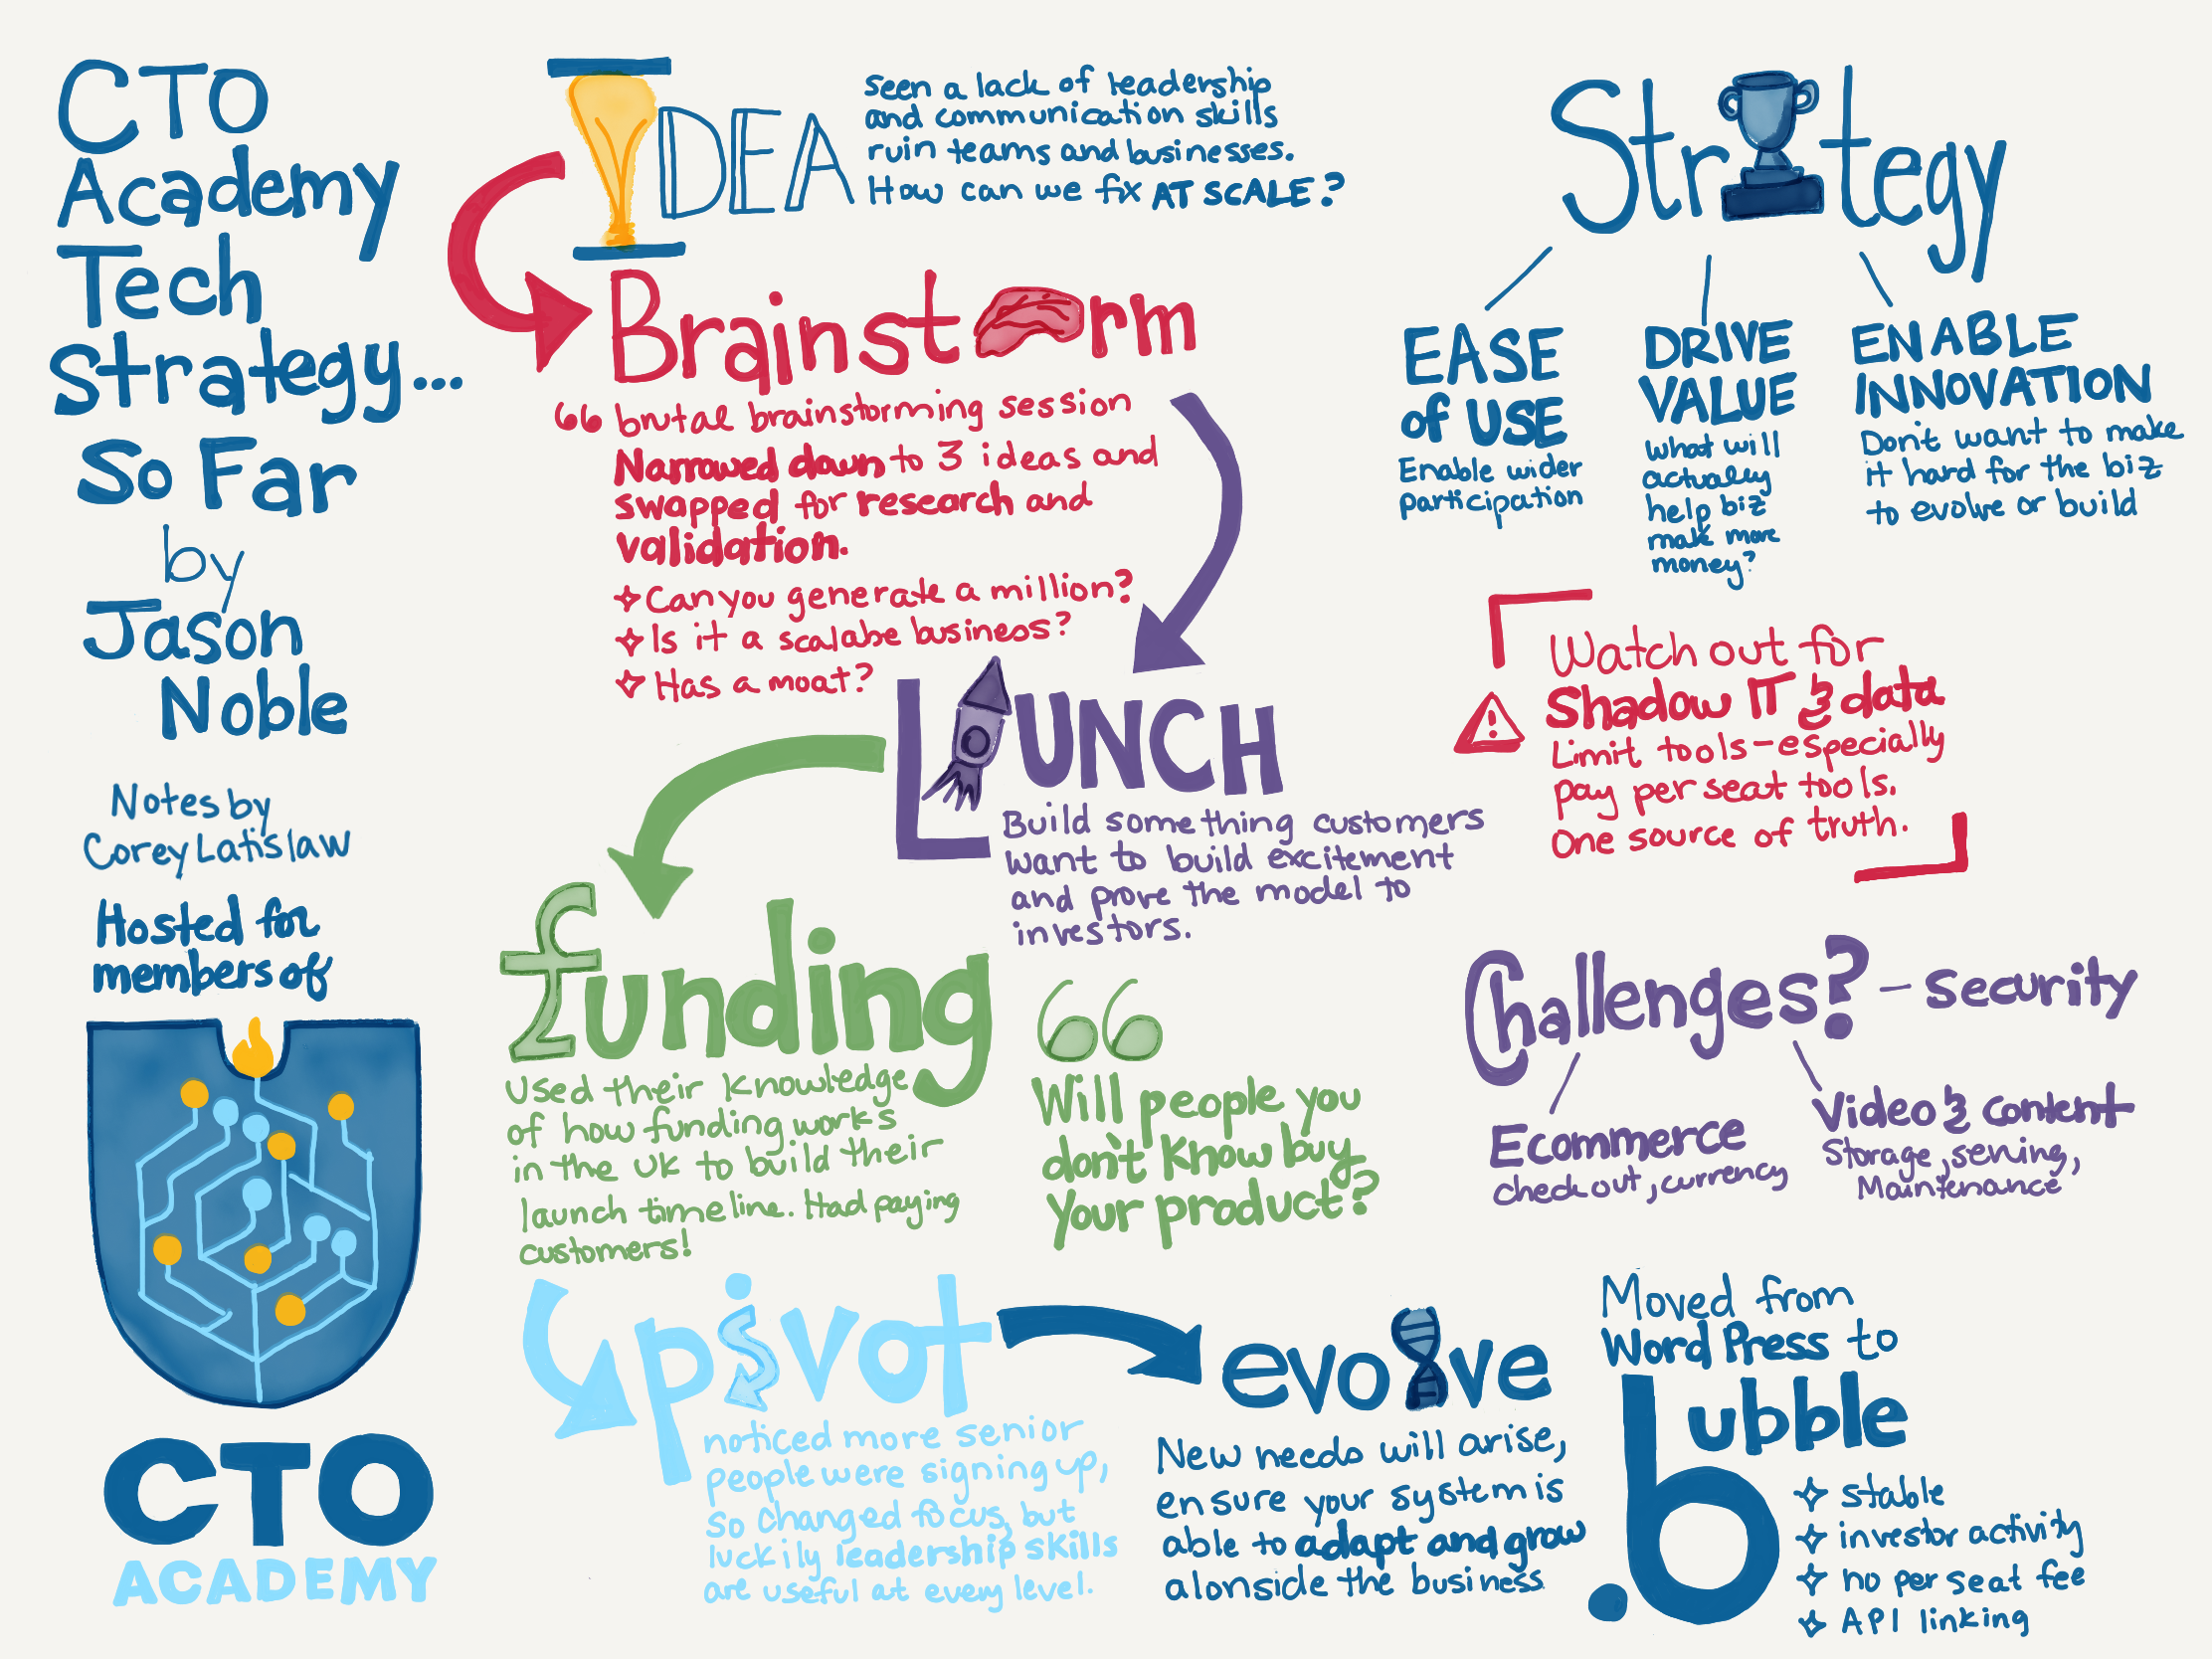 CTO
Academy
Tech
Strategy...
So Far
by
Jason
Noble
Notes by
Corey Latislaw
Hosted for
members of
CTO
ACADEMY
IDEA
seen a lack of leadership
and communication skills
ruin teams and businesses.
How can we fix AT SCALE?
Brainstorm
“ brutal brainstorming session
Narrowed down to 3 ideas and
swapped for research and
validation.
✧ Can you generate a million?
✧ Is it a scalabe business?
✧ Has a moat?
LAUNCH
Build something customers
want to build excitement
and prove the model to
investors.
funding
Used their knowledge
of how funding works
in the UK to build their
launch timeline. Had paying
customers!
“
Will people you
don't know buy
your product?
pivot
noticed more senior
people were signing up,
so changed focus, but
luckily leadership skills
are useful at every level.
evolve
New needs will arise,
ensure your system is
able to adapt and grow
alonside the business
Strategy
EASE
of USE
Enable wider
participation
DRIVE
VALUE
What will
actually
help biz
make more
money?
ENABLE
INNOVATION
Don't want to make
it hard for the biz
to evolve or build
Watch out for
Shadow IT & data
Limit tools - especially
pay per seat tools.
One source of truth.
Challenges? - security
Ecommerce
checkout, currency
Video & content
Storage, serving,
Maintenance
Moved from
WordPress to
.bubble
✧ stable
✧ investor activity
✧ no per seat fee
✧ API linking